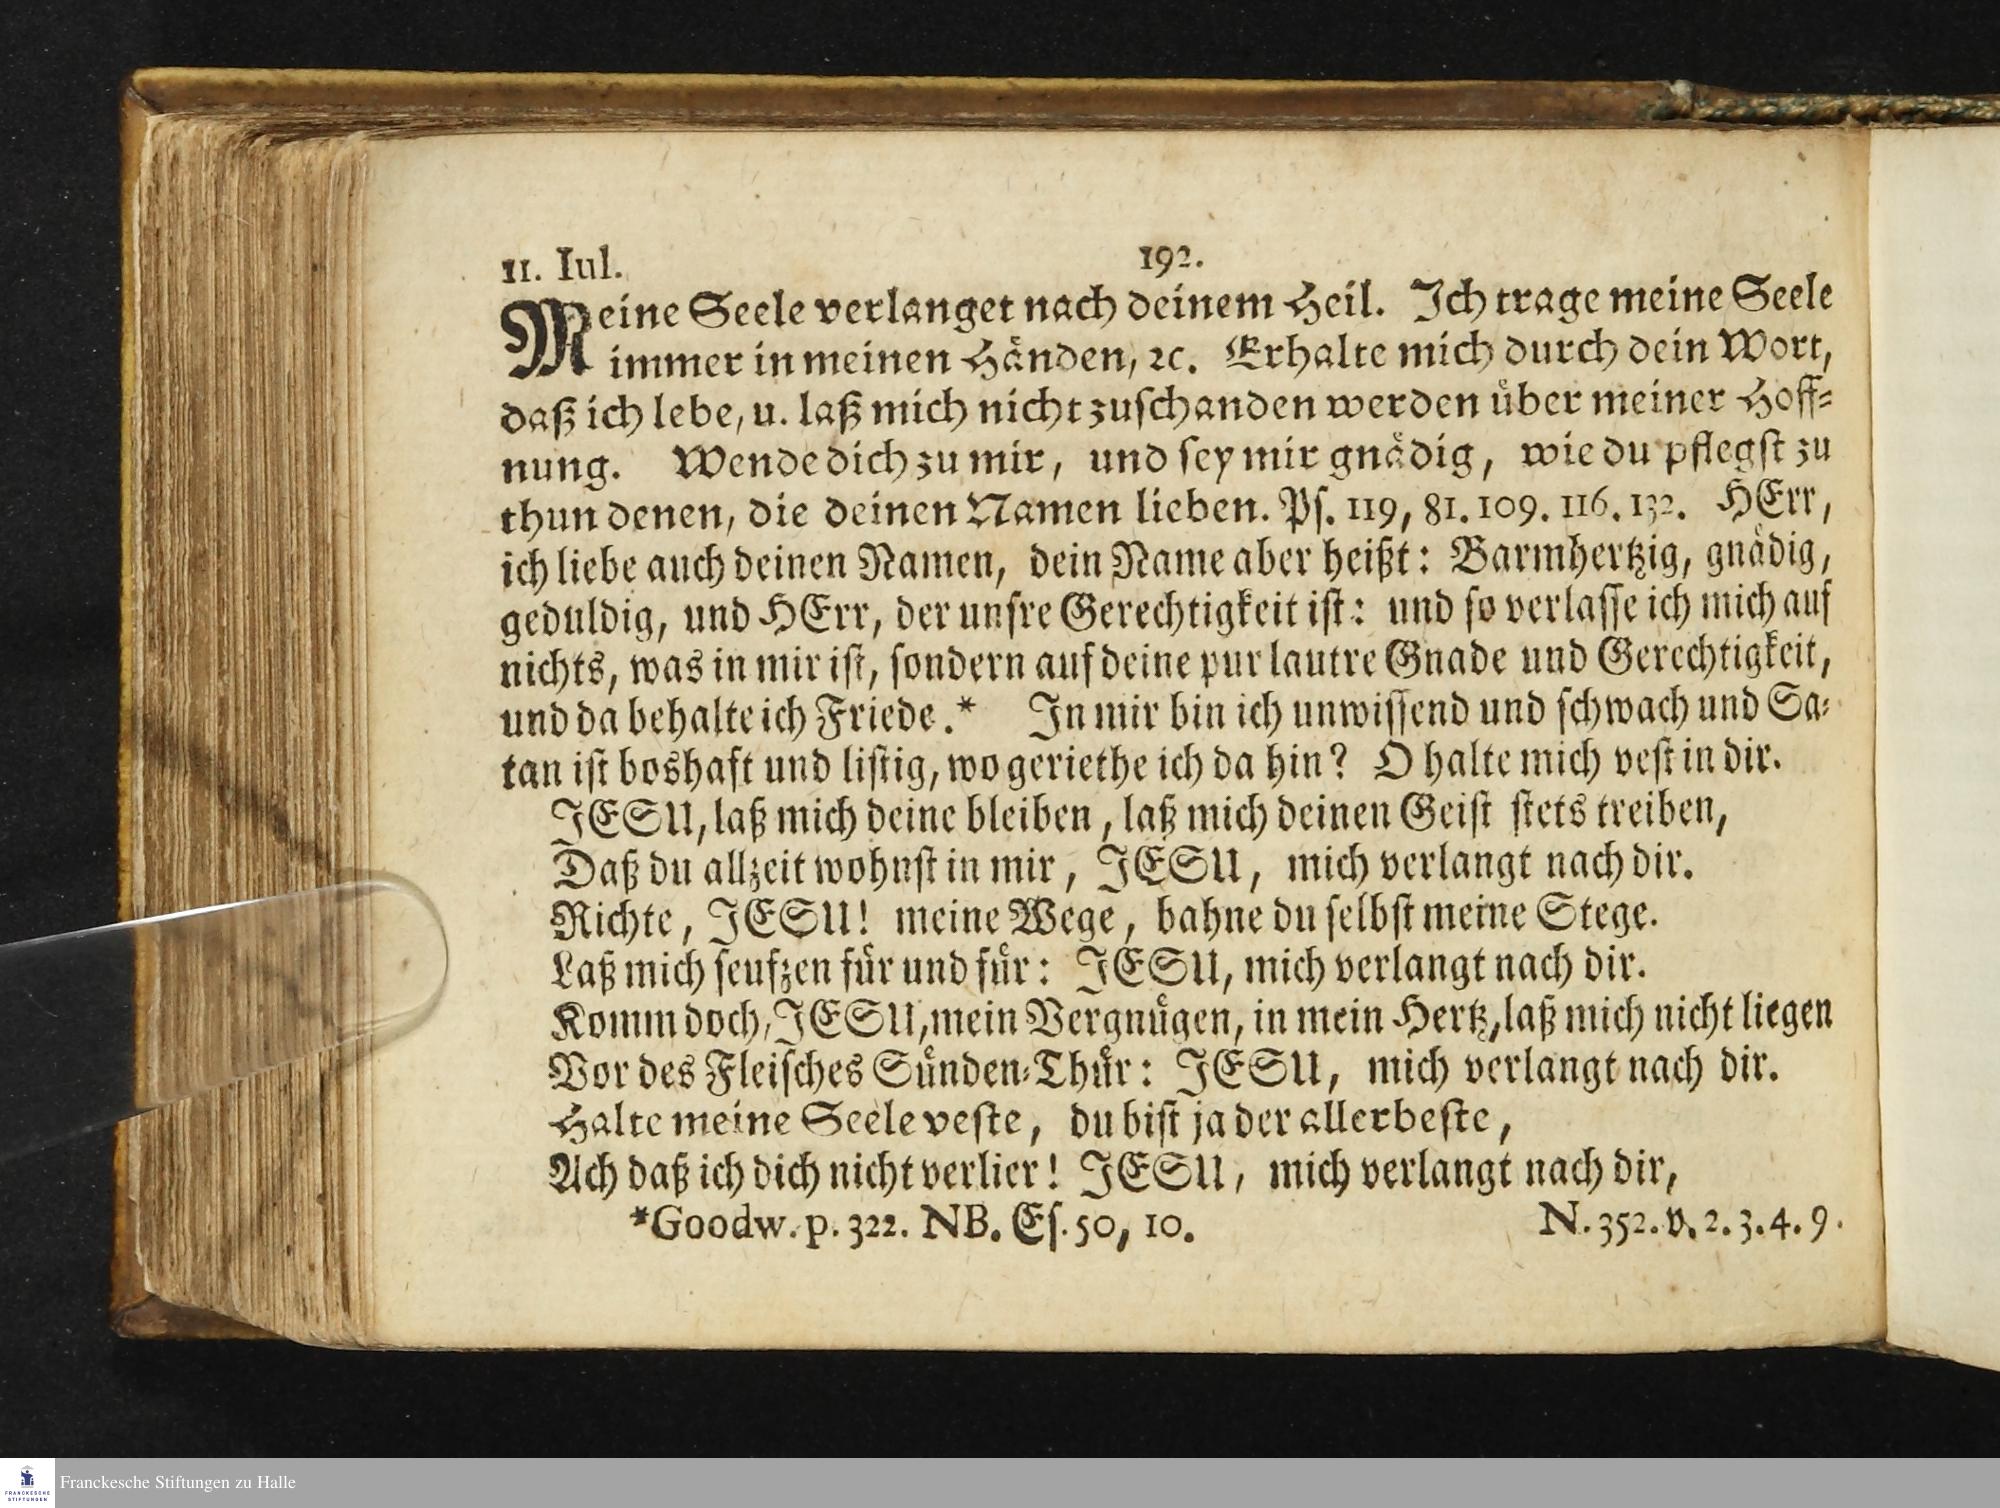 11. Iul. 192.
Meine Seele verlanget nach deinem Heil. Ich trage meine Seele
immer in meinen Händen, ꝛc. Erhalte mich durch dein Wort,
daß ich lebe, u. laß mich nicht zuschanden werden über meiner Hoff-
nung. Wende dich zu mir, und sey mir gnädig, wie du pflegst zu
thun denen, die deinen Namen lieben. Ps. 119, 81. 109. 116. 132. HErr,
ich liebe auch deinen Namen, dein Name aber heißt: Barmhertzig, gnädig,
geduldig, und HErr, der unsre Gerechtigkeit ist: und so verlasse ich mich auf
nichts, was in mir ist, sondern auf deine pur lautre Gnade und Gerechtigkeit,
und da behalte ich Friede.* In mir bin ich unwissend und schwach und Sa-
tan ist boshaft und listig, wo geriethe ich da hin? O halte mich vest in dir.
JESU, laß mich deine bleiben, laß mich deinen Geist stets treiben,
Daß du allzeit wohnst in mir, JESU, mich verlangt nach dir.
Richte, JESU! meine Wege, bahne du selbst meine Stege.
Laß mich seufzen für und für: JESU, mich verlangt nach dir.
Komm doch, JESU, mein Vergnügen, in mein Hertz, laß mich nicht liegen
Vor des Fleisches Sünden-Thür: JESU, mich verlangt nach dir.
Halte meine Seele veste, du bist ja der allerbeste,
Ach daß ich dich nicht verlier! JESU, mich verlangt nach dir,
*Goodw. p. 322. NB. Es. 50, 10. N. 352. v. 2. 3. 4. 9.
FRANCKESCHE
STIFTUNGEN
Franckesche Stiftungen zu Halle